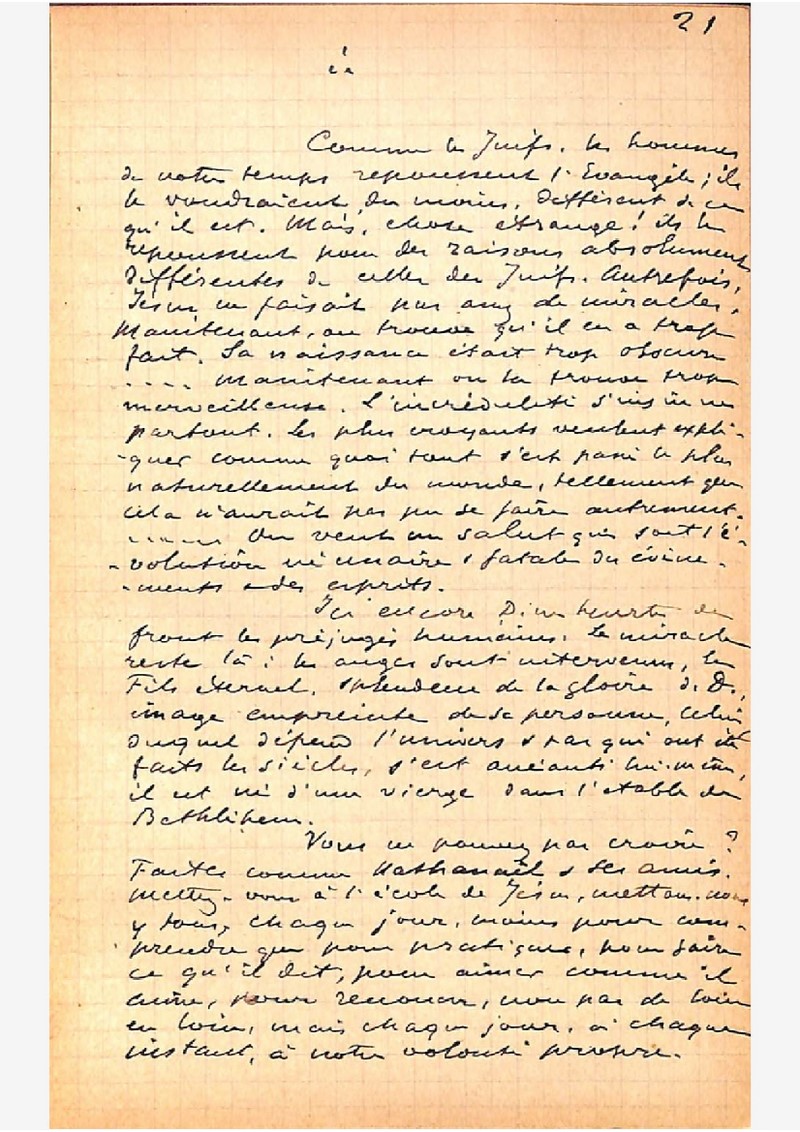 21
Comme les Juifs, les hommes
de notre temps repoussent l'Evangile ; ils
le voudraient du moins, différent de ce
qu'il est. Mais, chose étrange ! ils le
repoussent pour des raisons absolument
différentes de celles des Juifs. Autrefois,
Jésus ne faisait pas assez de miracles.
Maintenant, on trouve qu'il en a trop
fait. Sa naissance était trop obscure
.... Maintenant on la trouve trop
merveilleuse. L'incrédulité s'insinue
partout. Les plus croyants veulent expli-
-quer comme quoi tout s'est passé le plus
naturellement du monde, tellement que
cela n'aurait pas pu se faire autrement.
...... On veut un salut qui soit l'é-
-volution nécessaire & fatale des évène-
-ments & des esprits.
Ici encore Dieu heurte de
front les préjugés humains. Le miracle
reste là : les anges sont intervenus, le
Fils éternel, splendeur de la gloire de D.,
image empreinte de sa personne, Celui
duquel dépend l'univers & par qui ont été
faits les siècles, s'est anéanti lui-même,
il est né d'une vierge dans l'étable de
Bethléhem.
Vous ne pouvez pas croire ?
Faites comme Nathanaël & ses amis.
Mettez-vous à l'école de Jésus, mettons-nous
y tous, chaque jour, moins pour com-
prendre que pour pratiquer, pour faire
ce qu'il dit, pour aimer comme il
aime, pour renoncer, non pas de loin
en loin, mais chaque jour, à chaque
instant, à notre volonté propre.